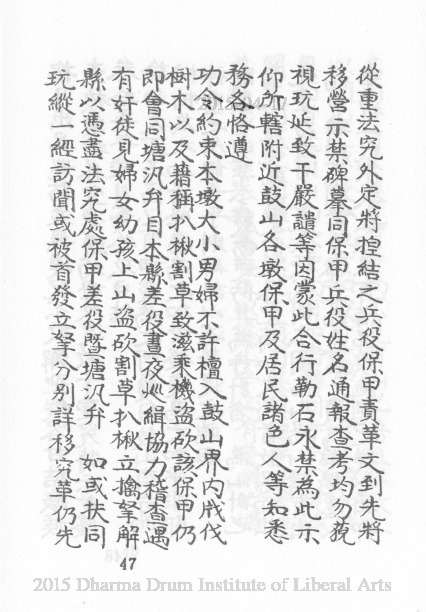 從重法究外定將捏結之兵役保甲責革文到先將
移營示禁碑摹同保甲兵役姓名通報查考均勿藐
視玩延致干嚴譴等因蒙此合行勒石永禁為此示
仰所轄附近鼓山各墩保甲及居民諸色人等知悉
務各恪遵
功令約束本墩大小男婦不許擅入鼓山界内戕伐
樹木以及藉稱扒楸割草致滋乘機盜砍該保甲仍
即會同塘汛弁目本縣差役晝夜廵緝協力稽查遇
有奸徒見婦女幼孩上山盜砍割草扒楸立擒拏解
縣以憑盡法究處保甲差役暨塘汛弁 如或扶同
玩縱一經訪聞或被首發立拏分別詳移究革仍先
47
2015 Dharma Drum Institute of Liberal Arts